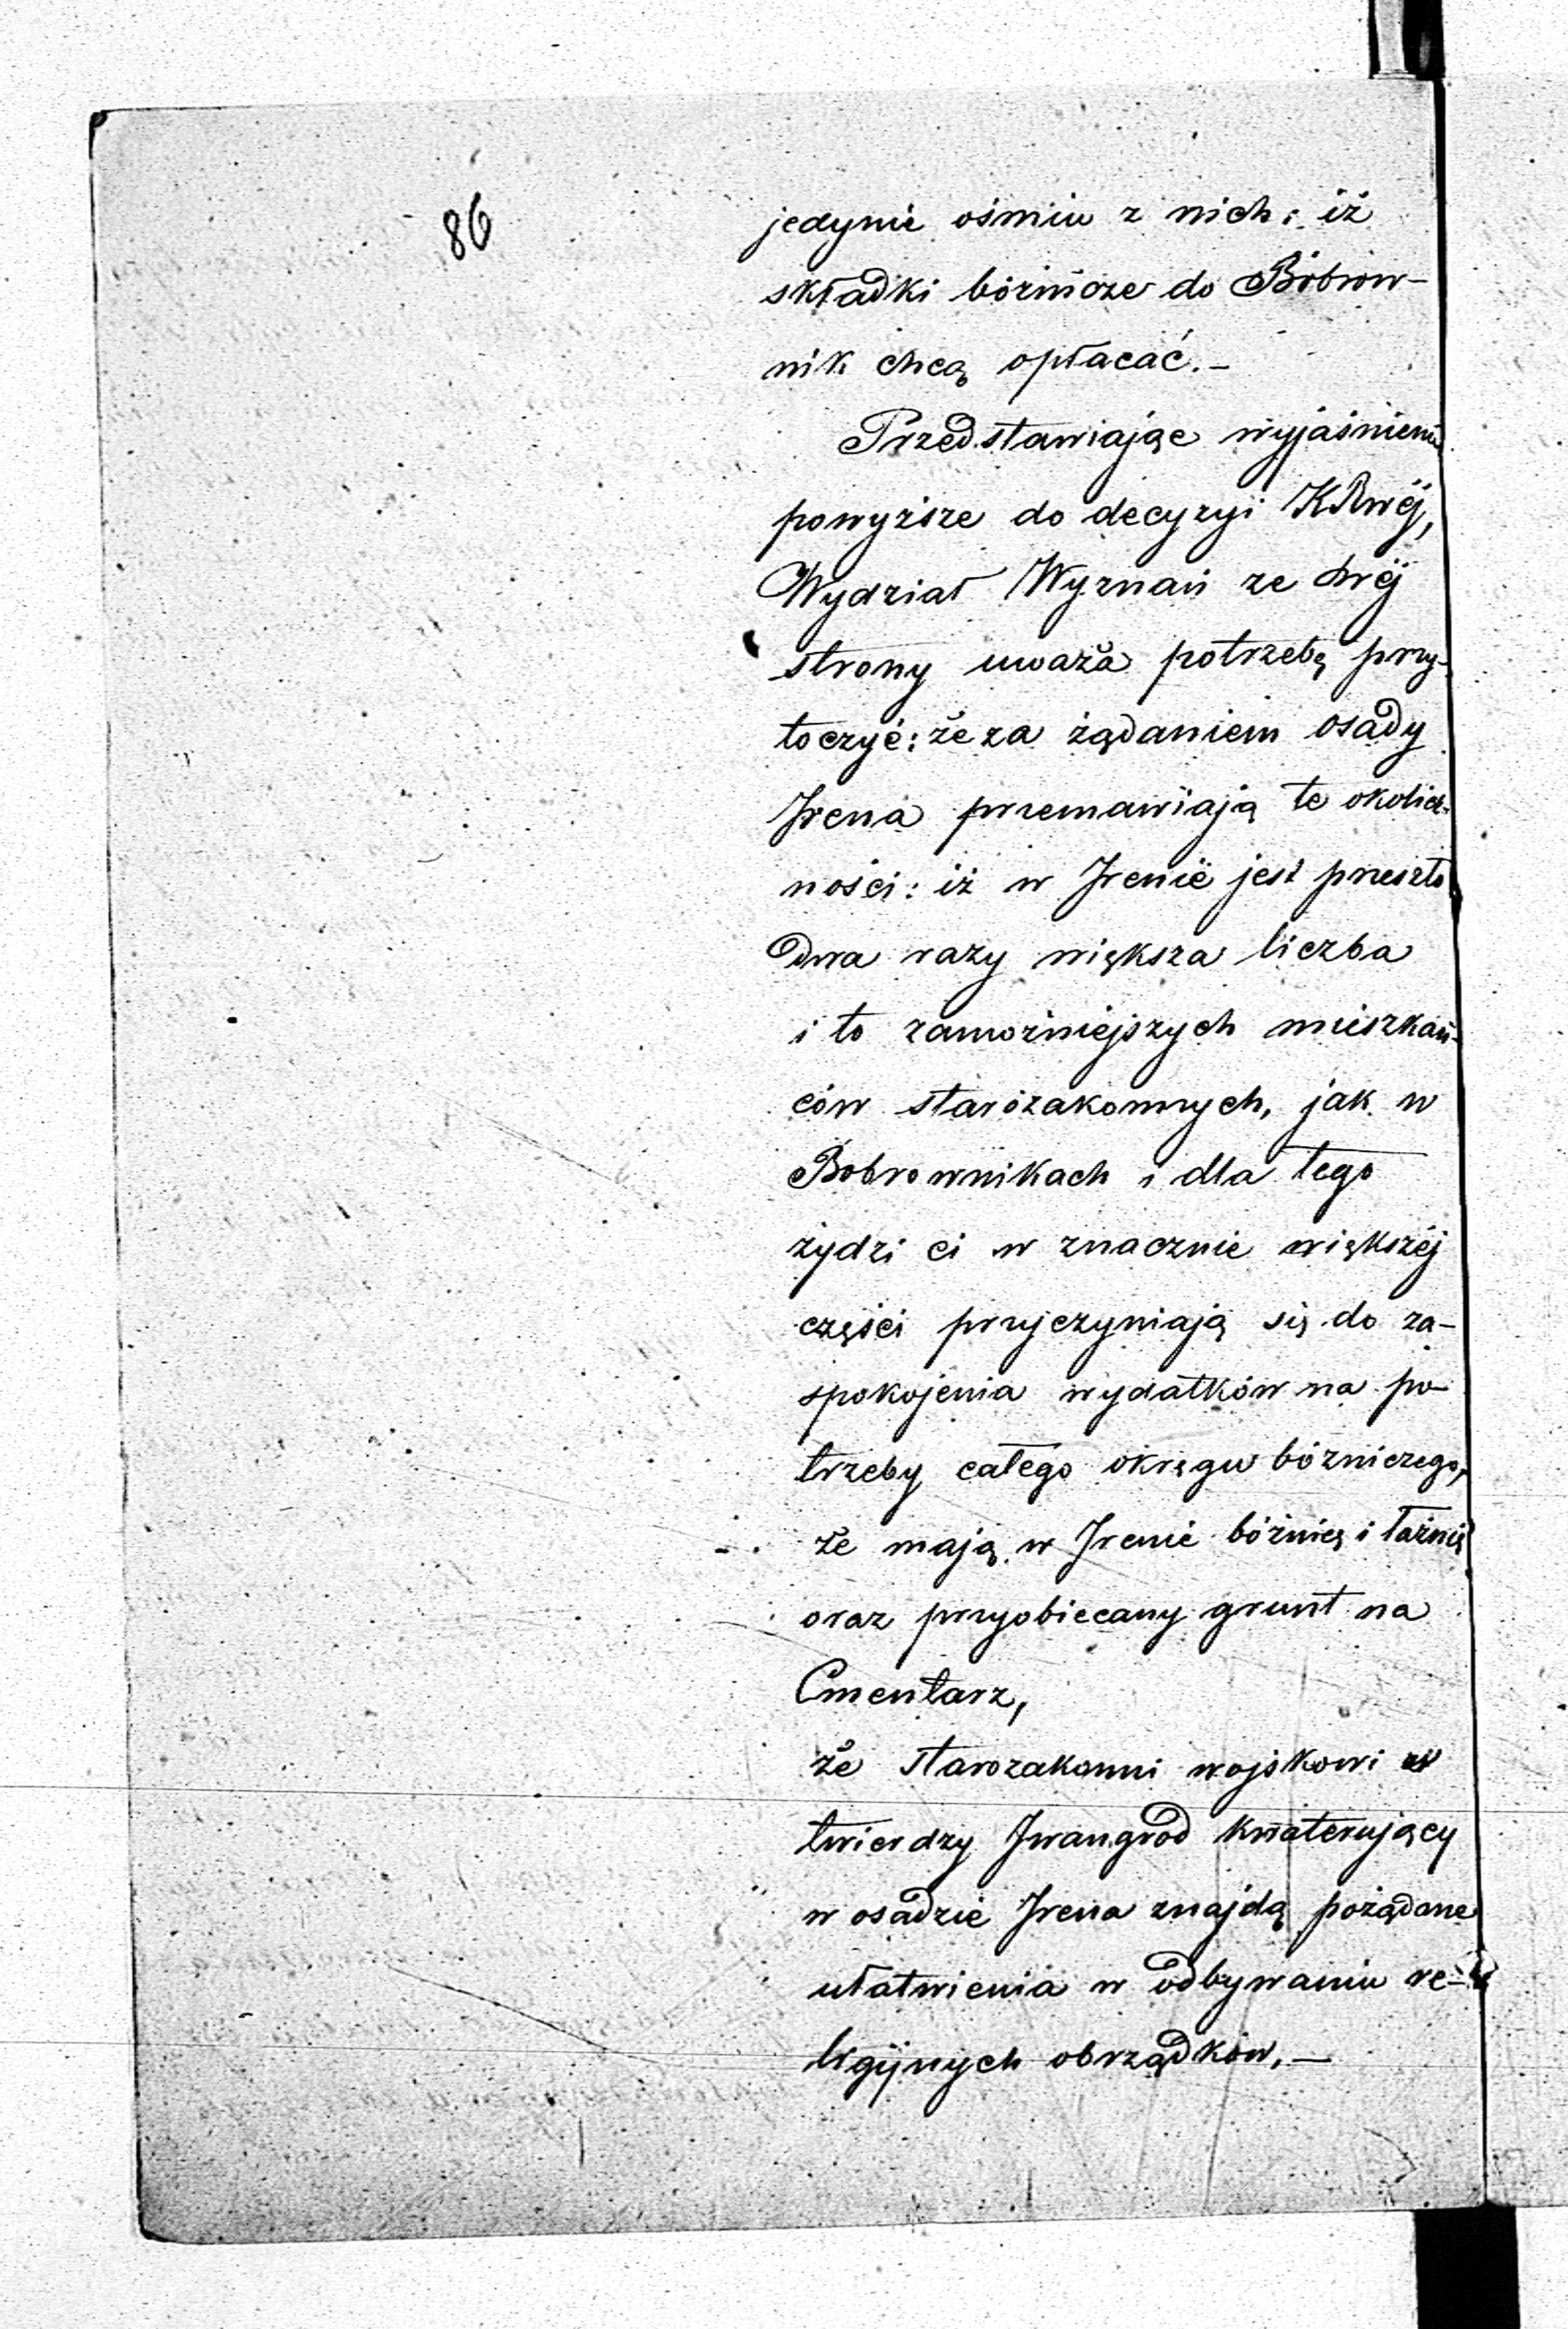 86
jedynie ośmiu z nich: iż
składki bóźnicze do Bobrow-
nik chcą opłacać.-
Przedstawiając wyjaśnienie
powyższe do decyzyi KRwéj,
Wydział Wyznań ze swéj
strony uważa potrzebę przy-
toczyć: że za żądaniem osady
Irena przemawiają te okolicz-
ności: iż w Irenie jest przeszło
dwa razy większa liczba
i to zamożniejszych mieszkań-
ców starozakonnych, jak w
Bobrownikach i dla tego
żydzi ci w znacznie większéj
części przyczyniają się do za-
spokojenia wydatków na po-
trzeby całego okręgu bóżniczego,
że mają w Irenie bóżnicę i łaźnię
oraz przyobiecany grunt na
Cmentarz,
że starozakonni wojskowi w
twierdzy Iwangród kwaterujący
w osadzie Irena znajdą pożądane
ułatwienia w odbywaniu re-
ligijnych obrządków.—